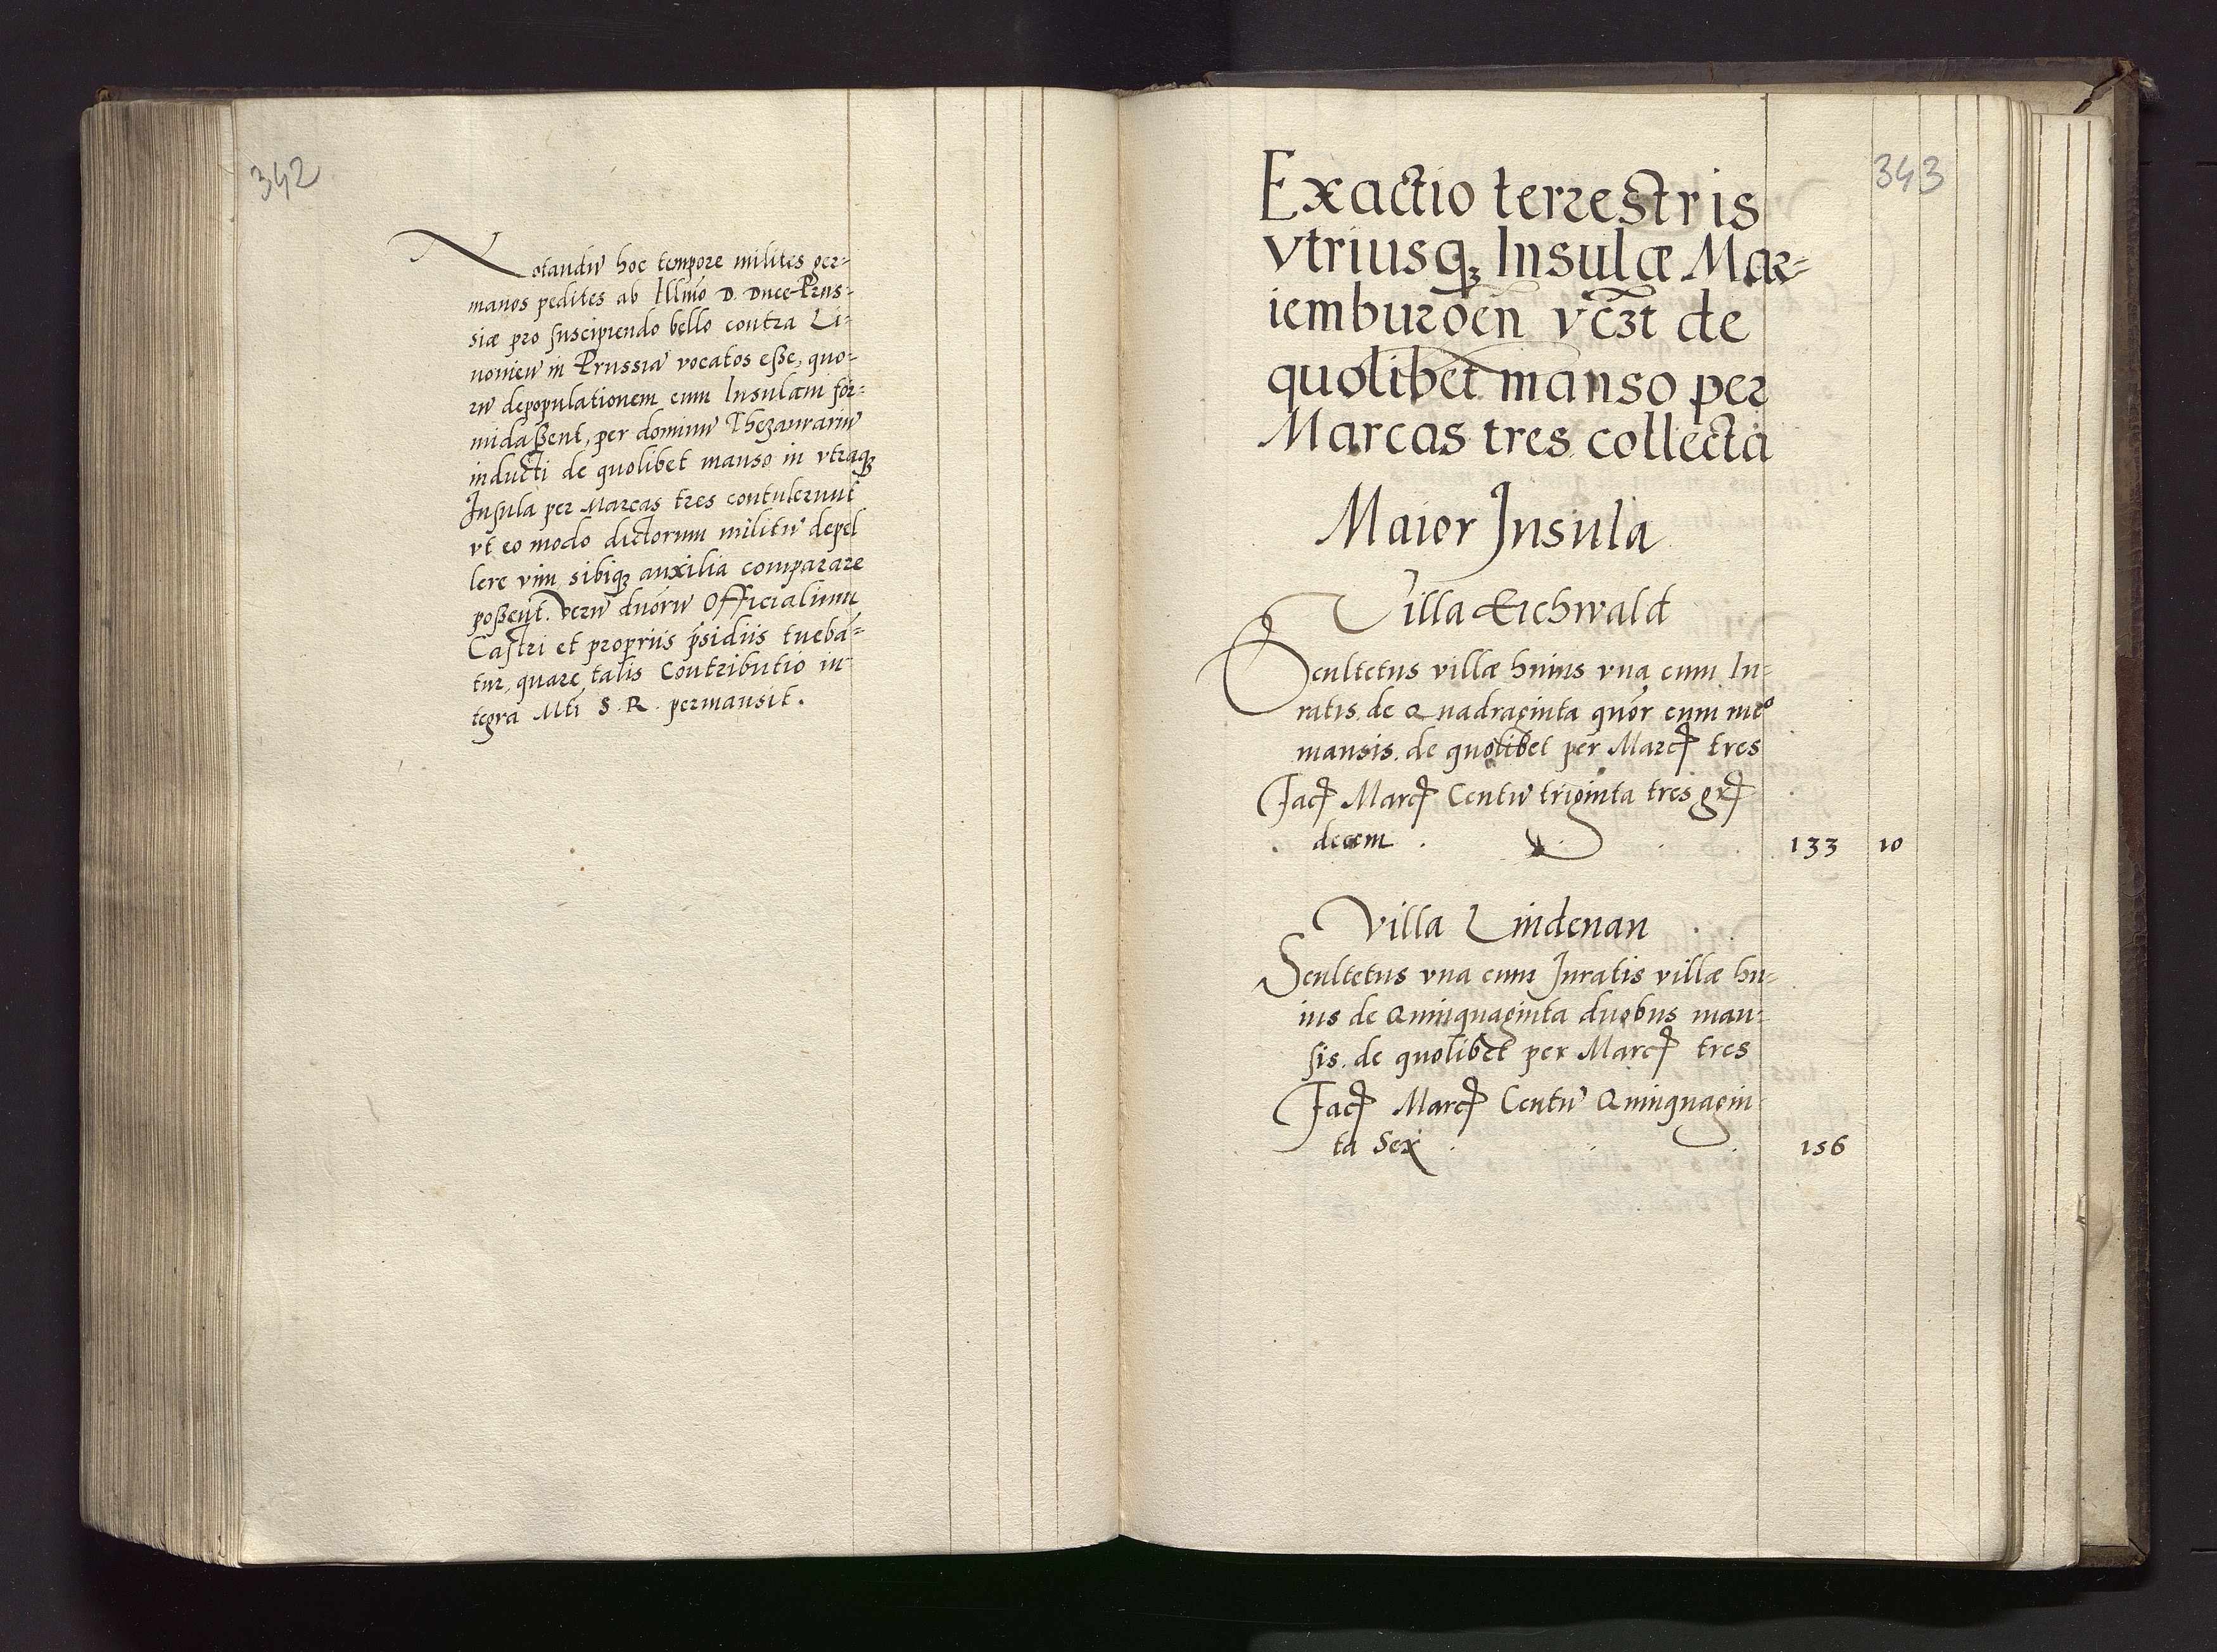 342
Notandũ hoc tempore milites ger-
manos pedites ab Illmo D. Duce Prus-
siæ pro suscipiendo bello contra Li-
voniem in Prussiã vocatos eße, quo-
rũ depopulationem cum Insulam for-
midaßent, per dominũ Thezaurariũ
inducti de quolibet manso in vtraqꝫ
Insula per Marcas tres contulerunt
vt eo modo dictorum militũ depel
lere vim sibiqꝫ auxilia comparare
poßent. Verũ duorũ Officialium
Castri et propriis psidiis tueba-
tur, quare talis Contributio in-
tegra Mti S. R. permansit.
343
Exactio terrestris
vtriusqꝫ Insulæ Mar-
iemburgen̄ vc̃ꝫt de
quolibet manso per
Marcas tres collecta
Maior Insula
Villa Eichwald
Scultetus villæ huius vna cum Iu-
ratis de Quadraginta quor cum meº
mansis de quolibet per Marcꝭ tres
Facꝭ Marcꝭ Centũ triginta tres grꝭ
decem 133 10
Villa Lindenau
Scultetus vna cum Juratis villæ hu-
ius de Quinquaginta duobus man-
sis de quolibet per Marcꝭ tres
Facꝭ Marcꝭ Centũ Quinquagin
ta Sex 156